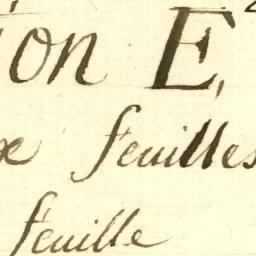 ion E,
feuilles
feuille